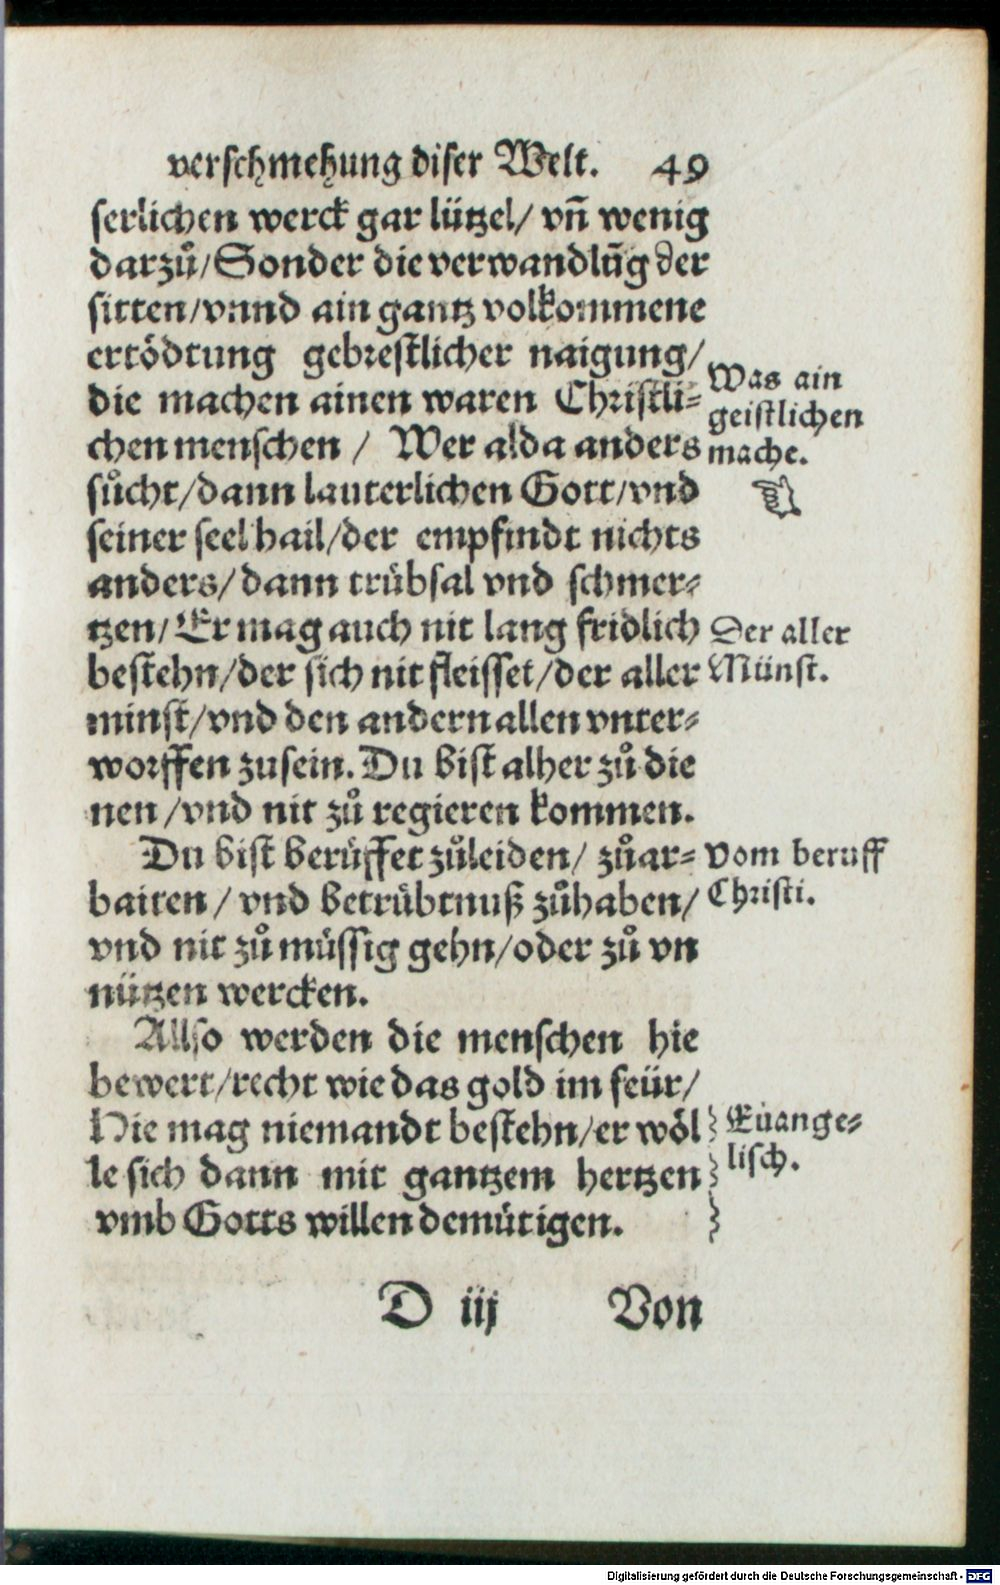 verschmehung diser Welt. 49
serlichen werck gar lützel/ vñ wenig
darzů/Sonder die verwandlūg der
sitten/vnnd ain gantz volkommene
ertödtung gebrestlicher naigung/
die machen ainen waren Christli⸗
chen menschen / Wer alda anders
sůcht/dann lauterlichen Gott/vnd
seiner seel hail/der empfindt nichts
anders/dann trübsal vnd schmer⸗
tzen/Er mag auch nit lang fridlich
bestehn/der sich nit fleisset/der aller
minst/vnd den andern allen vnter⸗
worffen zusein. Du bist alher zů die
nen /vnd nit zů regieren kommen.
Du bist berüffet zůleiden/ zůar⸗
baiten / vnd betrübtnuß zůhaben/
vnd nit zů müssig gehn/oder zů vn
nützen wercken.
Allso werden die menschen hie
bewert/recht wie das gold im feür/
Hie mag niemandt bestehn/er wöl
le sich dann mit gantzem hertzen
vmb Gotts willen demütigen.
Was ain
geistlichen
mache.
Der aller
Münst.
Vom beruff
Christi.
Euange⸗
lisch.
D iij Von
Digitalisierung gefördert durch die Deutsche Forschungsgemeinschaft - DFG